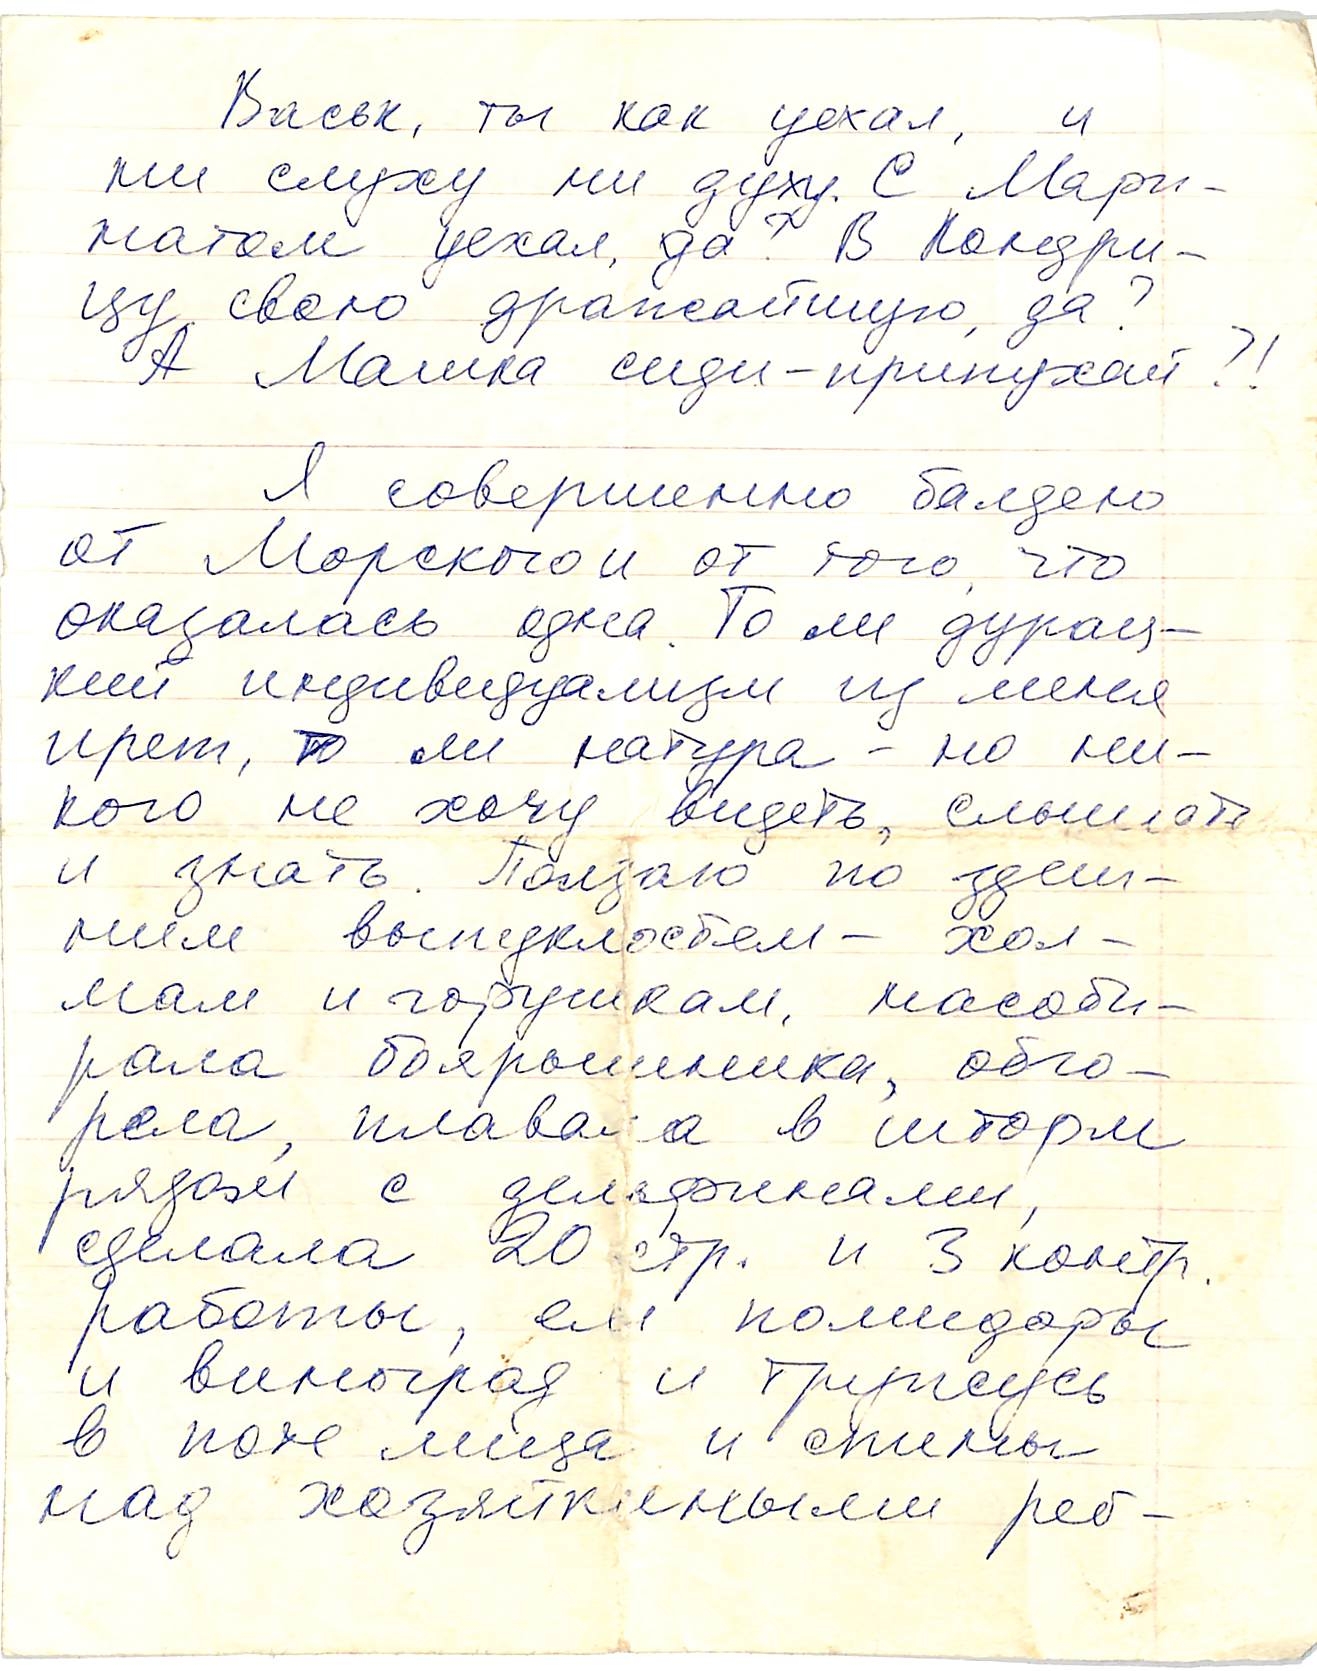 Васьк, ты как уехал, и
ни слуху ни духу. С Мари-
натом уехал, да? В Кондри-
цу свою дражайшую, да?
А Машка сиди-припухай?!
Я совершенно балдею
от Морского и от того, что
оказалась одна. То ли дурац-
кий индивидуализм из меня
прет, то ли натура - но ни-
кого не хочу видеть, слышать
и знать. Ползаю по здеш-
ним выпуклостям - хол-
мам и горушкам, насоби-
рала боярышника, обго-
рела, плавала в шторм
рядом с дельфинами,
сделала 20 стр. и 3 контр.
работы, ем помидоры
и виноград и тружусь
в поте лица и спины
над хозяйкиными реб-